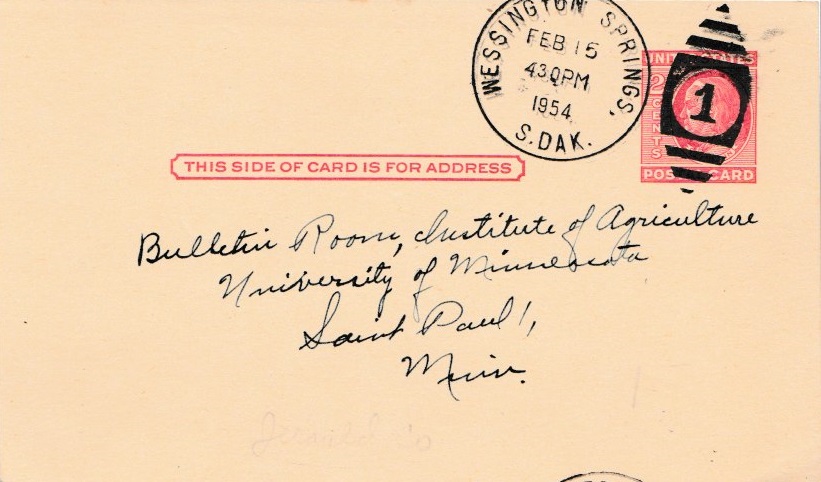 WESSINGTON SPRINGS,
FEB 15
430PM
1954
S.DAK.
1
UNITED STATES
2
CENTS
POSTAL CARD
THIS SIDE OF CARD IS FOR ADDRESS
Bulletin Room, Institute of Agriculture
University of Minnesota
Saint Paul 1,
Minn.